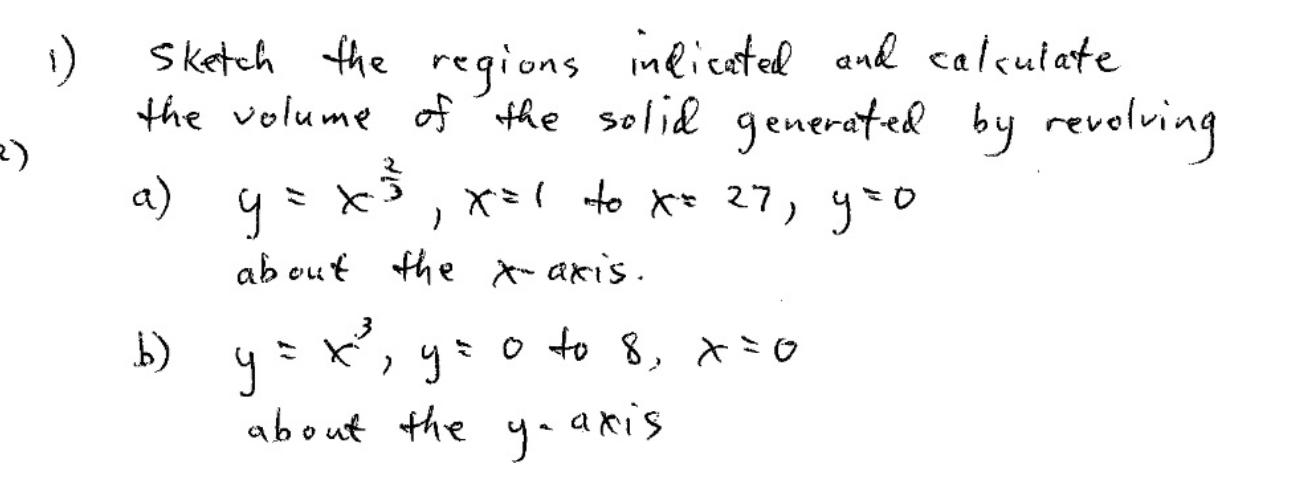 1) Sketch the regions indicated and calculate
the volume of the solid generated by revolving
2)
a) y = x^(2/3), x=1 to x= 27, y=0
about the x-axis.
b) y = x³, y = 0 to 8, x=0
about the y-axis